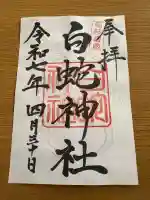 奉拝
白蛇神社
令和七年 四月三十日